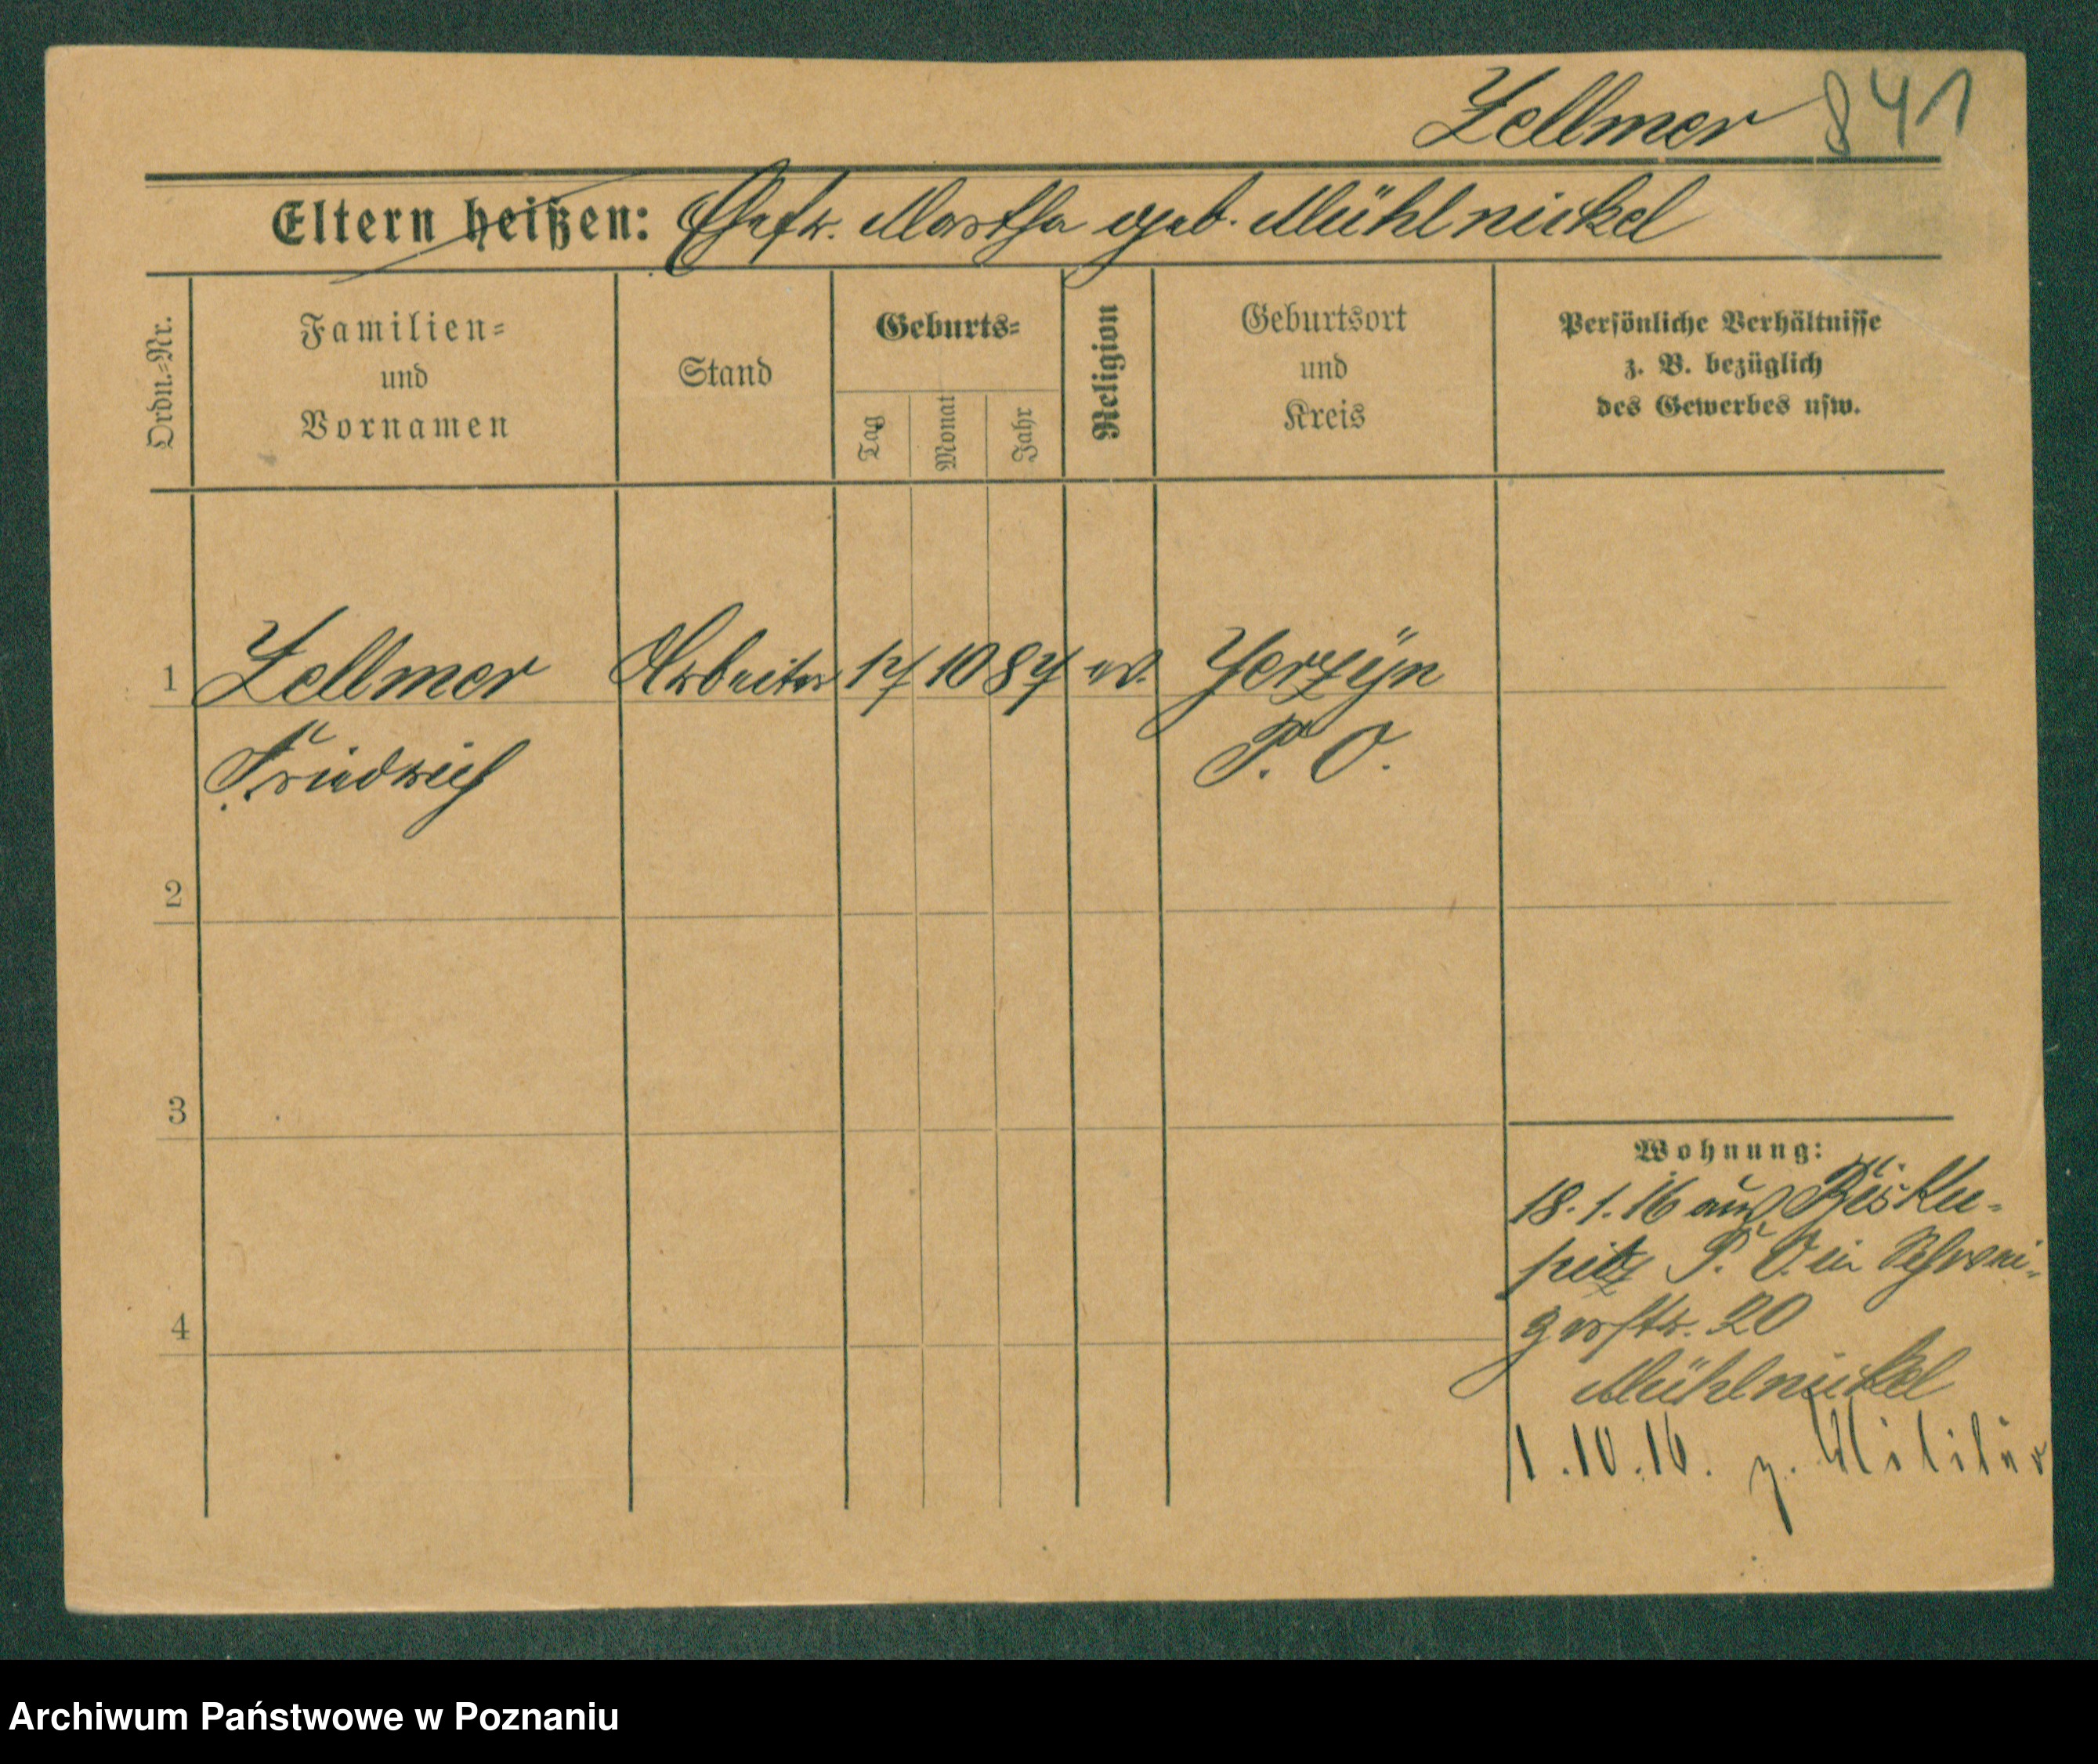 Zellmer 841
Eltern heißen: Ehefr. Martha geb. Mühlnickel
Ordn.-Nr.
Familien-
und
Vornamen
Stand
Geburts-
Tag
Monat
Jahr
Religion
Geburtsort
und
Kreis
Persönliche Verhältnisse
z. B. bezüglich
des Gewerbes usw.
1 Zellmer Arbeiter 14 10 84 ev. Jerzyn
Friedrich P. O.
2
3
4
Wohnung:
18.1.16 aus Bisku-
pitz P. O. in Schwei-
gerstr. 20
Mühlnickel
1.10.16. z. Militär
Archiwum Państwowe w Poznaniu